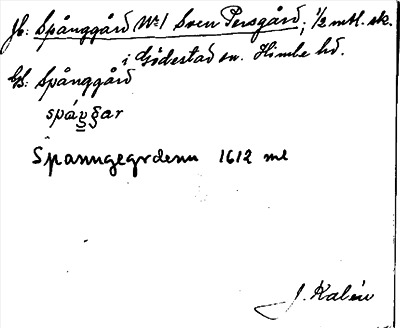 Jb: Spånggård No 1 Sven Persgård; 1/2 mtl. sk.
i Gödestad sn. Himle hd.
GS: Spånggård
spáŋgar
Spanngegrdenn 1612 ml
J. Kalén